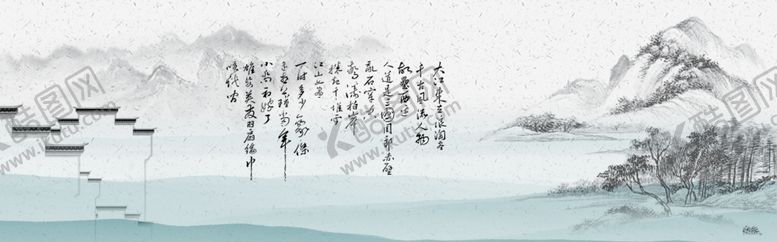 大江東去浪淘尽
千古風流人物
故壘西邊
人道是三國周郎赤壁
亂石穿空
驚濤拍岸
捲起千堆雪
江山如畫
一時多少豪傑
遙想公瑾當年
小喬初嫁了
雄姿英发羽扇綸巾